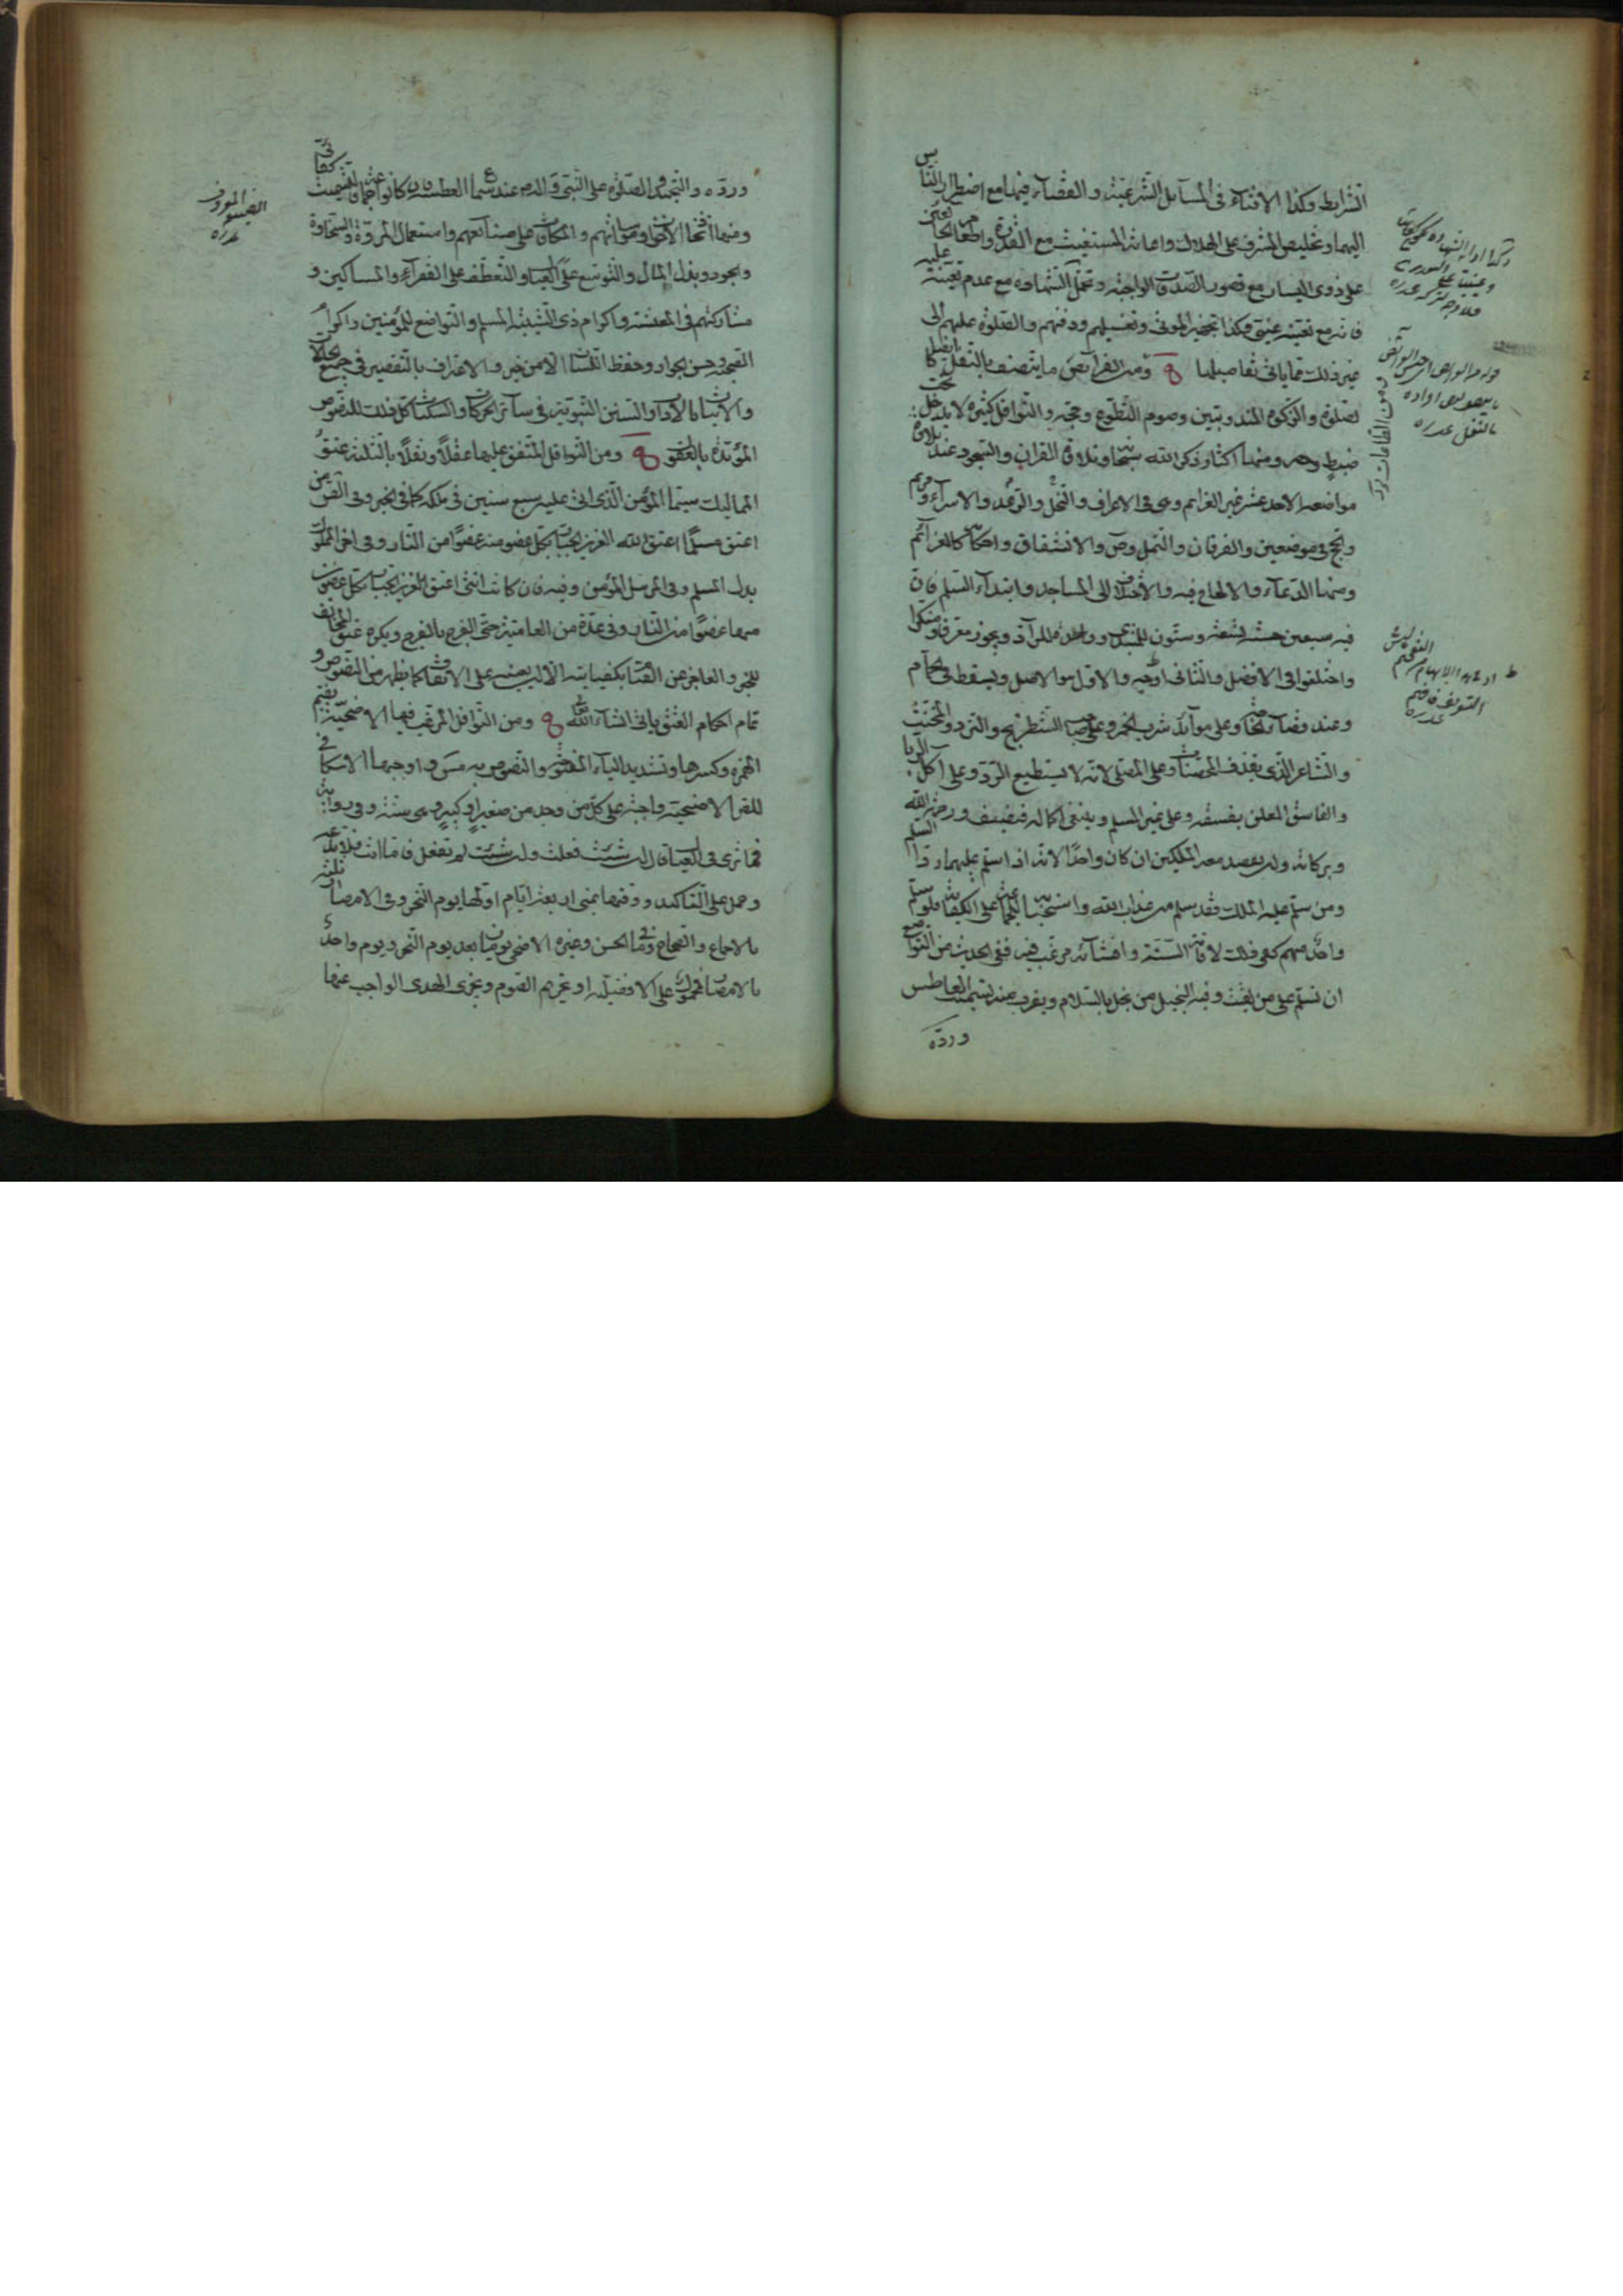 الشرايط وكذا الافتاء فى المسآئل الشرعية والقضآء فيهما مع اضطرار الناس
اليهما وتخليص المشرف على الهلاك واعانة المستغيث مع القدرة واطعام الجائعين
على ذوى اليسار مع قصور الصدقات الواجبة وتحمل الشهادة مع عدم تعينه عليه
فانه مع تعينه عينى وكذا تجهيز الموتى وتغسيلهم ودفنهم والصلوة عليهم الى
غير ذلك مما ياتى تفاصيلها ومن الفرآئض ما يتصف بالنفل ايضا كا
لصلوة والزكوة المندوبتين وصوم التطوع وحجه والنوافل كثيرة لا يدخل تحت
ضبط وحصر ومنها اكثار ذكر الله سبحانه وتلاوة القران والسجود عند تلاوة
مواضعه الاحد عشر غير العزايم وهى فى الاعراف والنحل والرعد والاسرآء ومريم
والحج فى موضعين والفرقان والنمل وص والانشقاق واحكامها كالعزآئم
ومنها الدعآء والالحاح فيه والاختلاف الى المساجد وابتدآء السلم فان
فيه سبعين حسنة تسعة وستون للمبتدى وواحدة للراد ويجوز معرفا ومنكرا
واختلفوا فى الافضل والثانى اوجه والاول هو الاصل ويسقط فى الحمام
وعند قضآء الحاجة وعلى موآئد شرب الخمر وعلى صاحب الشطرنج والنرد والمخنث
والشاعر الذى يقذف المحصنات وعلى المصلى لانه لا يستطيع الرد وعلى آكل الربا
والفاسق المعلن بفسقه وعلى غير المسلم وينبغى اكماله فيضيف ورحمة الله
وبركاته وان يقصد معه الملكين ان كان واحدا لانه اذا سلم عليهما ردا السلم
ومن سلم عليه الملك فقد سلم من عذاب الله واستحبابه للجماعة على الكفاية فلو سلم
واحد منهم كفى ذلك لاقامة السنة وافشآئه مرغب فيه ففى الحديث من التواضع
ان تسلم على من لقيت وفيه البخيل من بخل بالسلام ويقرب منه تسميت العاطس
ورده
ورده والتحميد والصلوة على النبى واله عند سماع العطسة وان كانوا جماعة فالتسميت كفائى
ومنها اتخاذ الاخوان ومواساتهم والمكافاة على صنآئعهم واستعمال المروة والسخاوة
والجود وبذل المال والتوسع على العيال والتعطف على الفقرآء والمساكين و
مشاركتهم فى المعيشة واكرام ذى الشيبة المسلم والتواضع للمؤمنين واكرام
الصحبة وحسن الجوار وحفظ اللسان الا من خير والاعتراف بالتقصير فى جميع الحالات
والاتيان بالاداب والسنن النبوية فى سآئر الحركات والسكنات كل ذلك للنصوص
المؤيدة بالعقول ومن النوافل المتفق عليها عقلا ونقلا بالثلثة عتق
المماليك سيما المؤمن الذى اتى عليه سبع سنين فى ملكه كما فى الخبر وفى القوى من
اعتق مسلما اعتق الله العزيز الجبار بكل عضو منه عضوا من النار وفى اخر المملوك
بدل المسلم وفى المرسل المؤمن وفيه فان كانت انثى اعتق العزيز الجبار بكل عضوين
منها عضوا من النار وفى عدة من العامية حتى الفرج بالفرج ويكره عتق المخالف
للخبر والعاجز عن القيام بكفايته الا ان يعينه على الانفاق كما يظهر من النصوص و
تمام احكام العتق ياتى انشآء الله تعالى ومن النوافل المرغب فيها الاضحية بضم
الهمزة وكسرها وتشديد اليآء المفتوحة والنصوص به مستفيضة واوجبها الاسكافى
للخبر الاضحية واجبة على كل من وجد من صغير او كبير وهى سنة وفى رواية
فما ترى فى العيال قال ان شئت فعلت وان شئت لم تفعل فاما انت فلا تدعه
وحمل على التاكيد ووقتها بمنى اربعة ايام اولها يوم النحر وفى الامصار ثلثة
بالاجماع والصحاح وفى الحسن وغيره الاضحى يومان بعد يوم النحر ويوم واحد
بالامصار فمحمول على الافضلية او تحريم الصوم ويجزى الهدى الواجب عنها